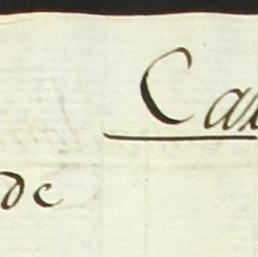 Ca
de